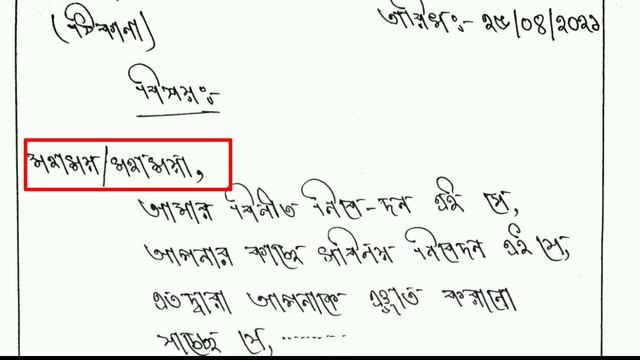 (ঠিকানা)
তারিখ:- ২৫/০৪/২০২১
বিষয়:-
মহাশয়/মহাশয়া,
আমার বিনীত নিবেদন এই যে,
আপনার কাছে সবিনয় নিবেদন এই যে,
এতদ্বারা আপনাকে জ্ঞাত করানো
যাচ্ছে যে, ..........